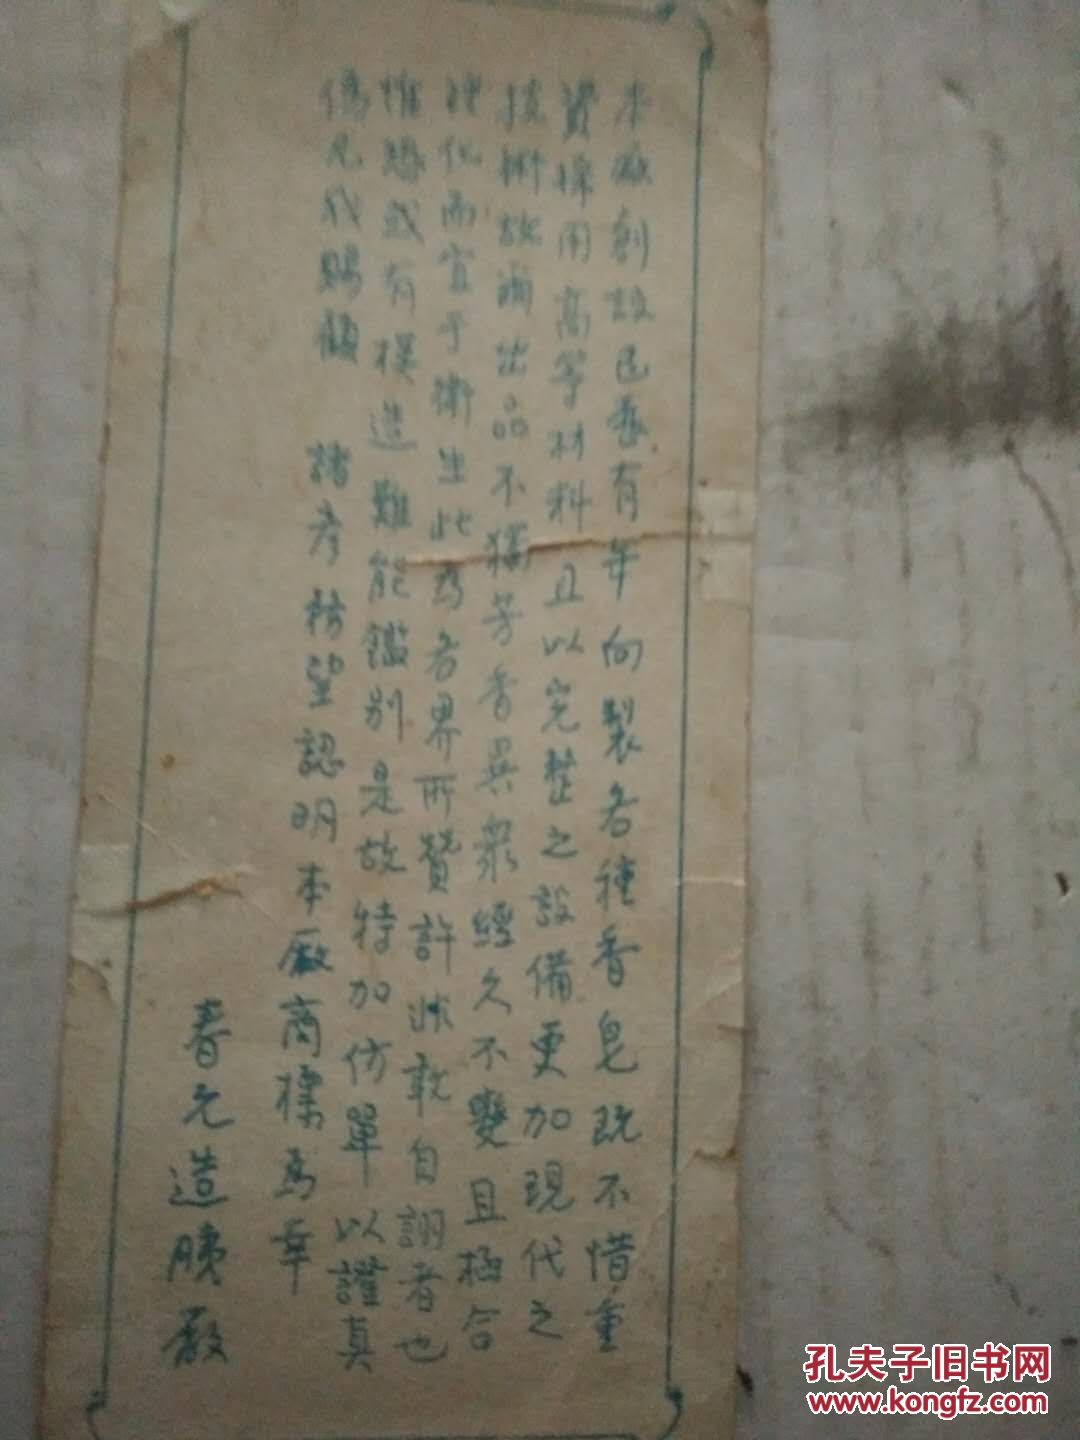 本廠創設已歷有年向製各種香皂既不惜重
資採用高等材料且以完整之設備更加現代之
技術故爾出品不獨芳香異衆經久不變且極合
硬化而宜乎衛生此爲各界所贊許非敢自詡者也
惟恐或有模造難能鑑別是故特加仿單以證真
僞凡我賜顧 諸君務望認明本廠商標爲幸
春元造胰廠
孔夫子旧书网
www.kongfz.com